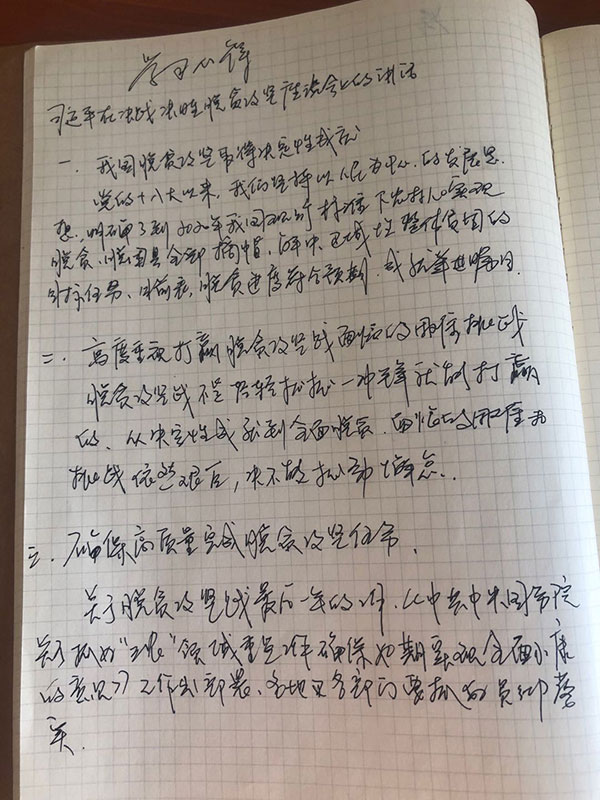 学习心得
习近平在决战决胜脱贫攻坚座谈会上的讲话
一、我国脱贫攻坚取得决定性成就
党的十八大以来,我们坚持以人民为中心的发展思
想,明确了到2020年我国现行标准下农村人口实现
脱贫、脱困县全部摘帽、解决区域性整体贫困的
目标任务、目前看,脱贫进度符合预期,成就举世瞩目.
二、高度重视打赢脱贫攻坚战面临的困难挑战
脱贫攻坚战不是轻轻松松一冲锋就能打赢
的、从决定性成就到全面脱贫.面临的困难和
挑战依然艰巨,决不能松劲懈怠..
三、确保高质量完成脱贫攻坚任务.
关于脱贫攻坚战最后一年的工作,中共中央国务院
关于抓好"三农"领域重点工作确保如期实现全面小康
的意见》工作出部署、各地区各部门要抓好贯彻落
实.